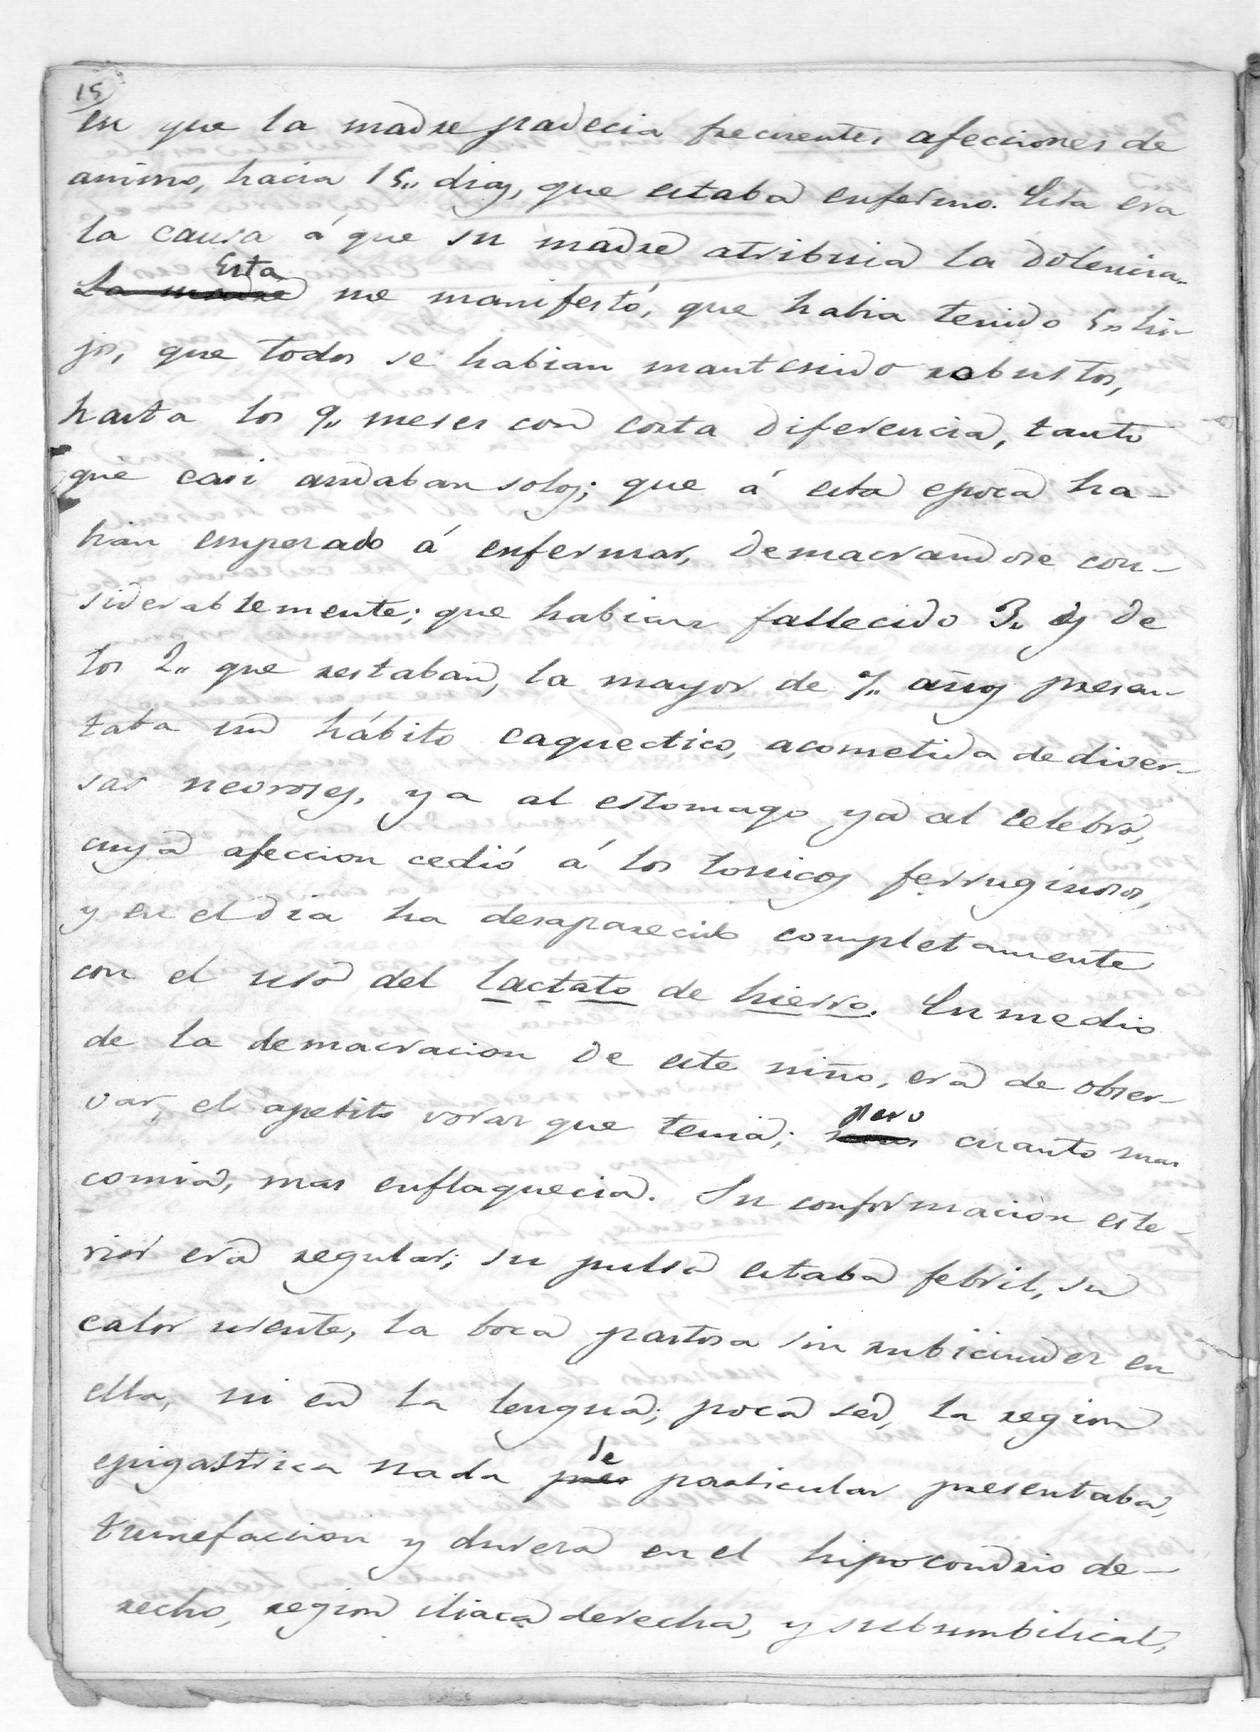 15
en que la madre padecia frecuentes afecciones de
animo, hacia 15,, dias, que estaba enfermo. Esta era
la causa á que su madre atribuia la dolencia.
Esta
La madre me manifestó, que habia tenido 5,, hi-
jos, que todos se habian mantenido robustos,
hasta los 9,, meses con corta diferencia, tanto
que casi andaban solos; que á esta epoca ha-
bian empezado á enfermar, demacrandose con-
siderablemente; que habian fallecido 3,, y de
los 2,, que restaban, la mayor de 7,, años presen-
taba un hábito caquectico, acometida de diver-
sas neuroses, ya al estomago ya al celebro,
cuya afeccion cedió á los tonicos ferruginosos,
y en el dia ha desaparecido completamente
con el uso del lactato de hierro. En medio
de la demacracion de este niño, era de obser-
var, el apetito voraz que tenia; pero cuanto mas
comia, mas enflaquecia. Su conformacion este-
rior era regular; su pulso estaba febril, su
calor urente, la boca pastosa sin rubicundez en
ella, ni en la lengua; poca sed, la region
epigastrica nada de particular presentaba,
tumefaccion y dureza en el hipocondrio de-
recho, region iliaca derecha, y subumbilical,